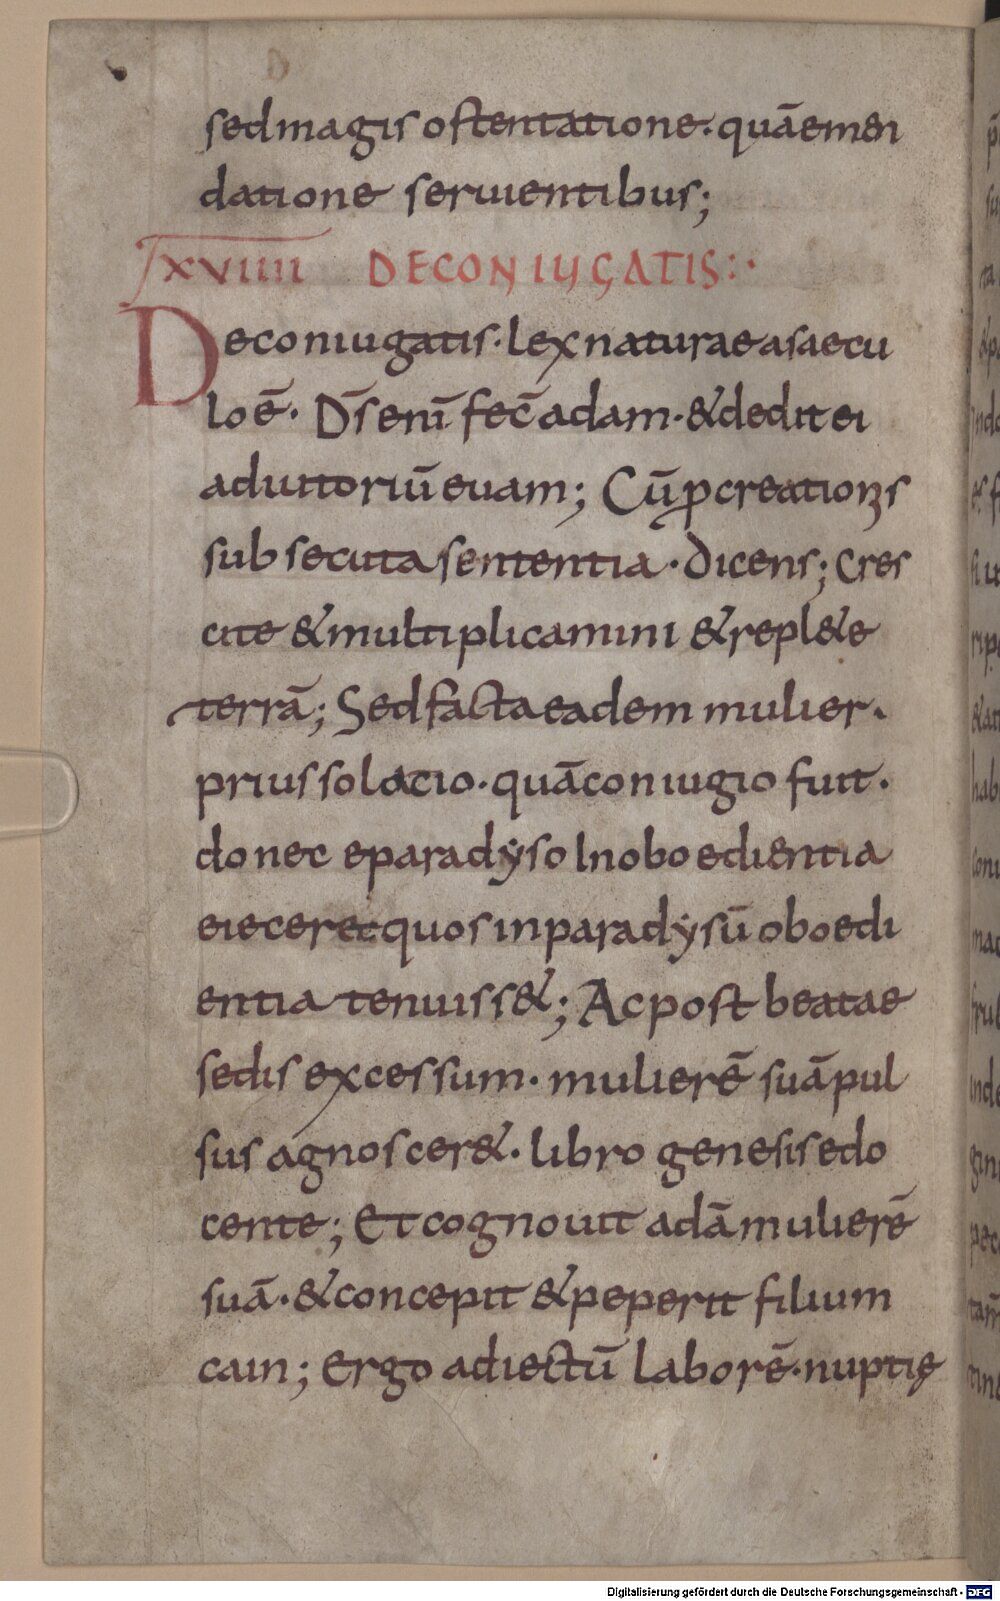 sedmagis ostentatione· quāemen
datione seruientibus;
LXVIIII DECONIUGATIS:·
Deconiugatis· lex naturae asaecu
lo ē· D̄s enī fec̄ adam· &dedit ei
adiutoriū euam; Cū ꝓcreationis
subsecuta sententia· dicens; Cres
cite &multiplicamini &repl&e
terrā; Sed facta eadem mulier·
prius solacio· quāconiugio fuit·
donec eparadẏso Inoboedientia
eieceret quos inparadẏsū oboedi
entia tenuiss&; Ac post beatae
sedis excessum· mulierē suā pul
sus agnoscer&· libro genesis edo
cente; Et cognouit adā mulierē
suā· &concepit &peperit filium
cain; Ergo adiectū laborē· nuptię
Digitalisierung gefördert durch die Deutsche Forschungsgemeinschaft - DFG